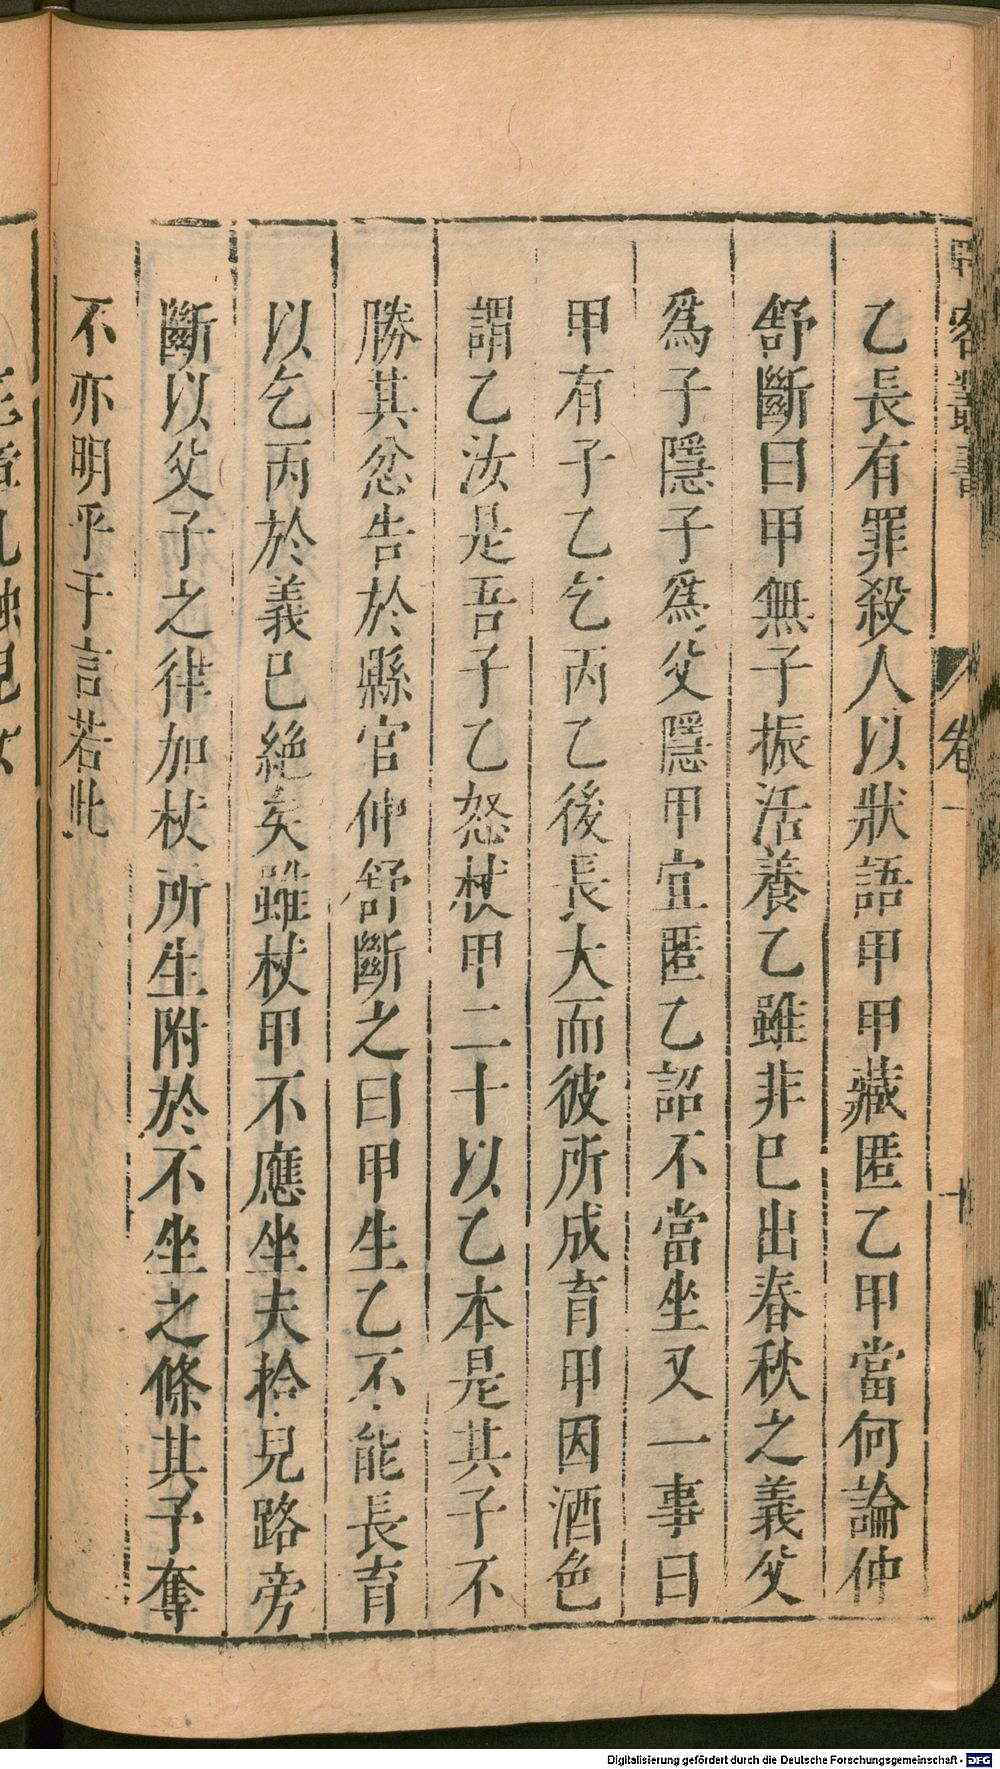 客叢書
卷一
十
乙長有罪殺人以狀語甲甲藏匿乙甲當何論仲
舒斷曰甲無子振活養乙雖非已出春秋之義父
爲子隱子爲父隱甲宜匿乙詔不當坐又一事曰
甲有子乙乞丙乙後長大而彼所成育甲因酒色
謂乙汝是吾子乙怒杖甲二十以乙本是其子不
勝其忿告於縣官仲舒斷之曰甲生乙不能長育
以乞丙於義已絶矣雖杖甲不應坐夫拾兒路旁
斷以父子之律加杖所生附於不坐之條其予奪
不亦明乎于言若此
Digitalisierung gefördert durch die Deutsche Forschungsgemeinschaft - DFG